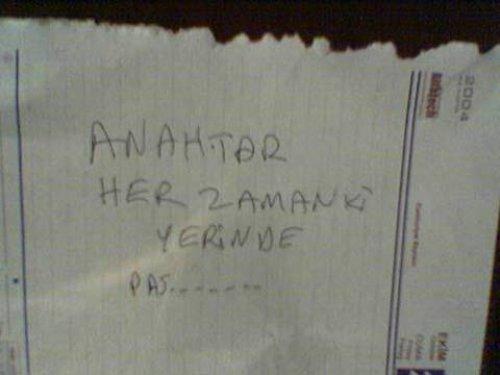 ANAHTAR
HER ZAMANKİ
YERİNDE
PAS........
2004
EKİM